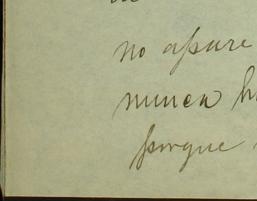 no apare
nunca h
porque